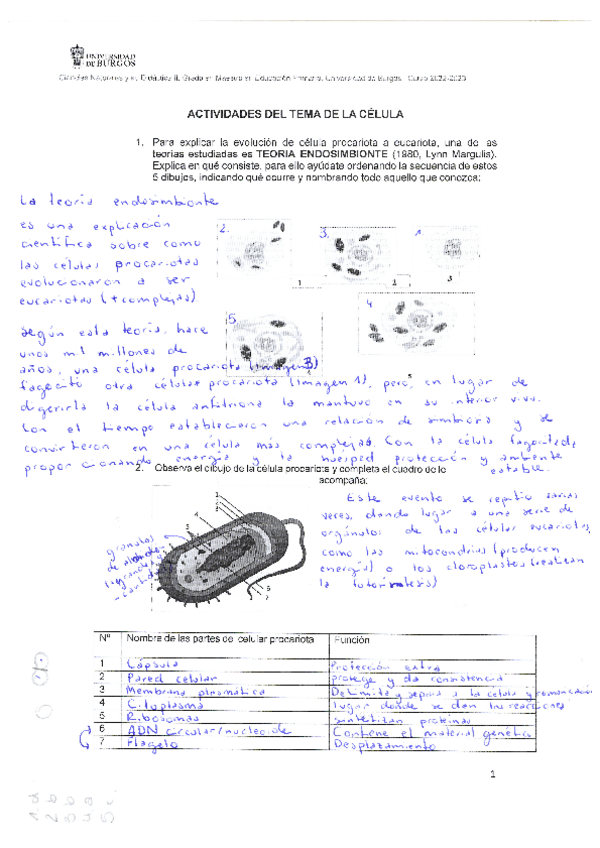 UNIVERSIDAD
DE BURGOS
Ciencias Naturales y su Didáctica II. Grado en Maestro en Educación Primaria. Universidad de Burgos. Curso 2022-2023
ACTIVIDADES DEL TEMA DE LA CÉLULA
1. Para explicar la evolución de célula procariota a eucariota, una de las
teorías estudiadas es TEORIA ENDOSIMBIONTE (1980, Lynn Margulis).
Explica en qué consiste, para ello ayúdate ordenando la secuencia de estos
5 dibujos, indicando qué ocurre y nombrando todo aquello que conozca:
La teoría endosimbionte
es una explicación
científica sobre como
las células procariotas
evolucionaron a ser
eucariotas (+complejas).
2.
3.
1.
1
2
3
4
5
5
Según esta teoría, hace
unos mil millones de
años, una célula procariota (imagen 3)
fagocitó otra célula procariota (imagen 1), pero, en lugar de
digerirla la célula anfitriona la mantuvo en su interior viva.
Con el tiempo establecieron una relación de simbiosis y se
convirtieron en una célula más compleja. Con la célula fagocitada
proporcionando energía y la huésped protección y ambiente
estable.
2. Observa el dibujo de la célula procariota y completa el cuadro de lo
acompaña:
Este evento se repitió varias
veces, dando lugar a una serie de
orgánulos de las células eucariotas,
como las mitocondrias (producen
energía) o los cloroplastos (realizan
la fotosíntesis)
gránulos
de
1
2
3
4
5
6
7
Nº Nombre de las partes de celular procariota Función
1 Cápsula Protección extra
2 Pared celular protege y da consistencia
3 Membrana plasmática Delimita y separa a la célula y comunicación
4 Citoplasma lugar donde se dan las reacciones
5 Ribosomas sintetizan proteínas
6 ADN circular/nucleoide Contiene el material genético
7 Flagelo Desplazamiento
1